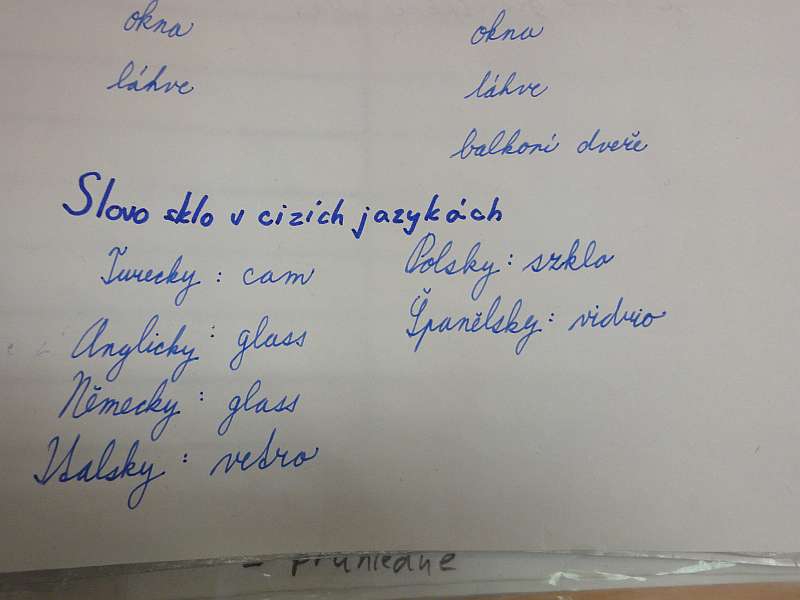 okna
láhve
okna
láhve
balkoní dveře
Slovo sklo v cizích jazykách
Turecky : cam
Anglicky : glass
Německy : glass
Italsky : vetro
Polsky : szklo
Španělsky : vidrio
- průhledné